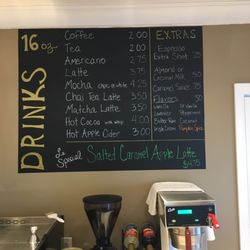 DRINKS
16 oz.
Coffee 2.00
Tea 2.00
Americano 2.75
Latte 3.75
Mocha choc or white 4.25
Chai Tea Latte 3.50
Matcha Latte 3.50
Hot Cocoa with whip 4.00
Hot Apple Cider 3.00
EXTRAS
Espresso
Extra Shot
Almond or
Coconut Milk .50
Caramel Sauce
Flavors
Vanilla
Pumpkin Spice
Special Salted Caramel Apple Latte
$4.75